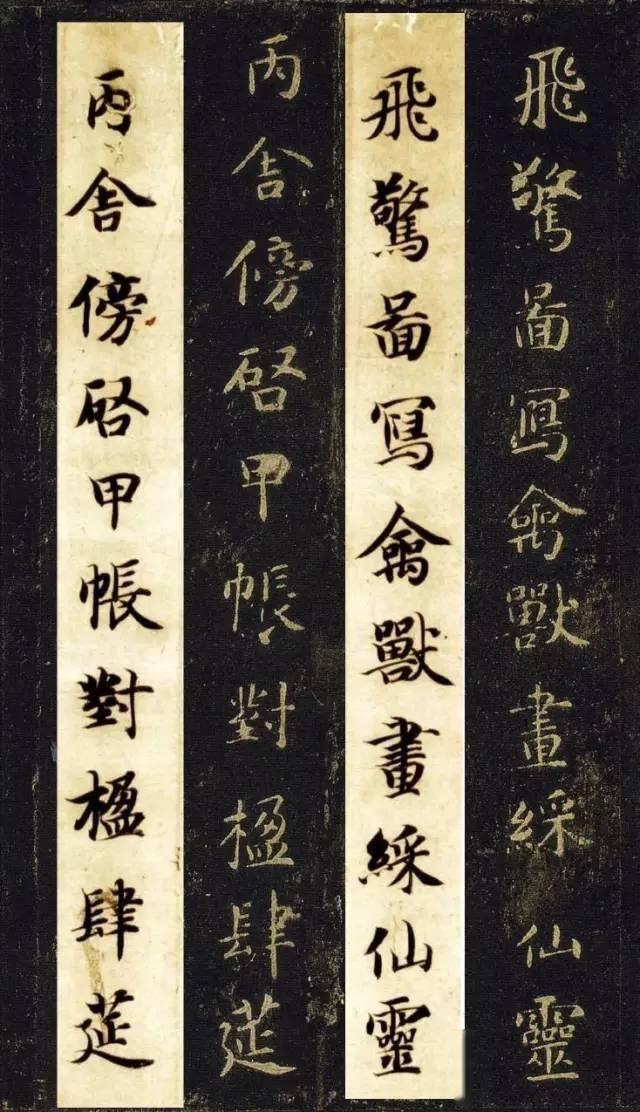 飛驚啚寫禽獸畫綵仙靈
飛驚啚寫禽獸畫綵仙靈
丙舍傍啓甲帳對楹肆莚
丙舍傍啓甲帳對楹肆莚